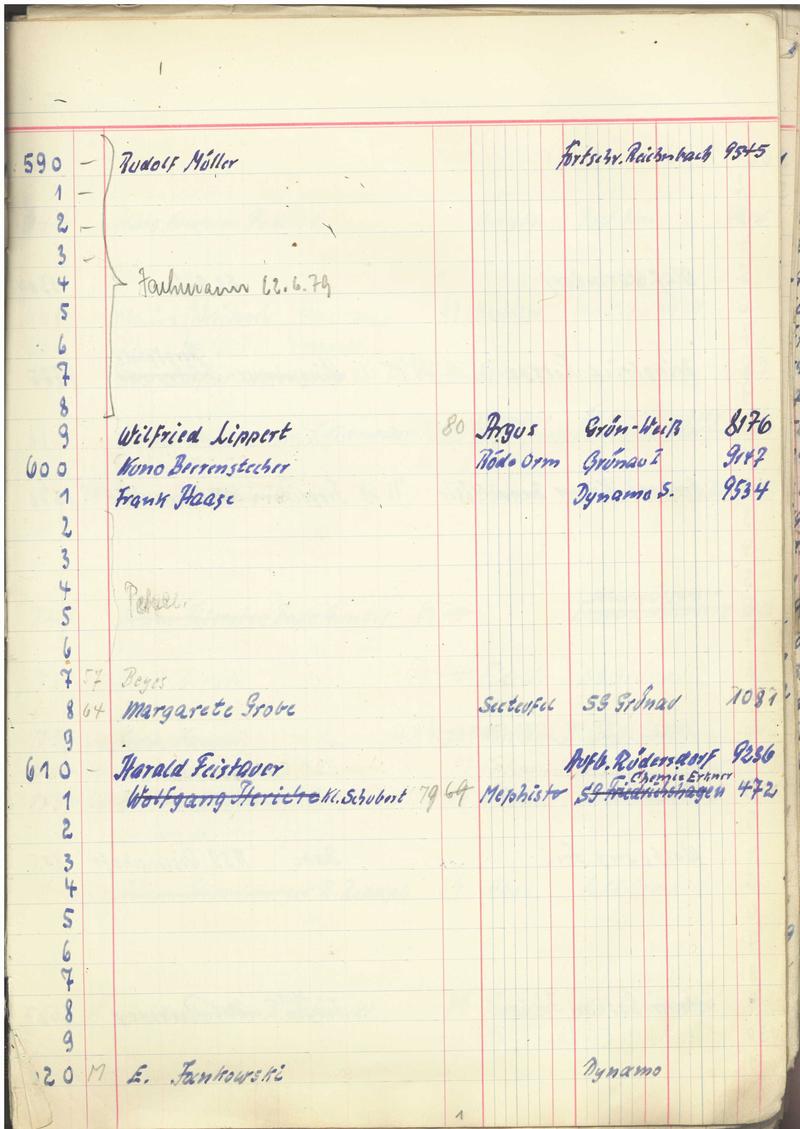 590 — Rudolf Müller Fortschr. Reichenbach 9545
1 —
2 —
3 —
4 22.6.79
5
6
7
8
9 Wilfried Lippert 80 Argus Grün-Weiß 8176
600 Kuno Berrenstecher Röde Orm Grünau I 9147
1 Frank Haase Dynamo S. 9534
2
3
4
5
6
7 57 Beyer
8 64 Margarete Grobe Seeteufel SG Grünau 1081
9
610 — Harald Feistauer Aufb. Rüdersdorf 9236
Chemie Erkner
1 Wolfgang Kl. Schubert 79 64 Mephisto SG Friedrichshagen 472
2
3
4
5
6
7
8
9
20 M E. Jankowski Dynamo
1